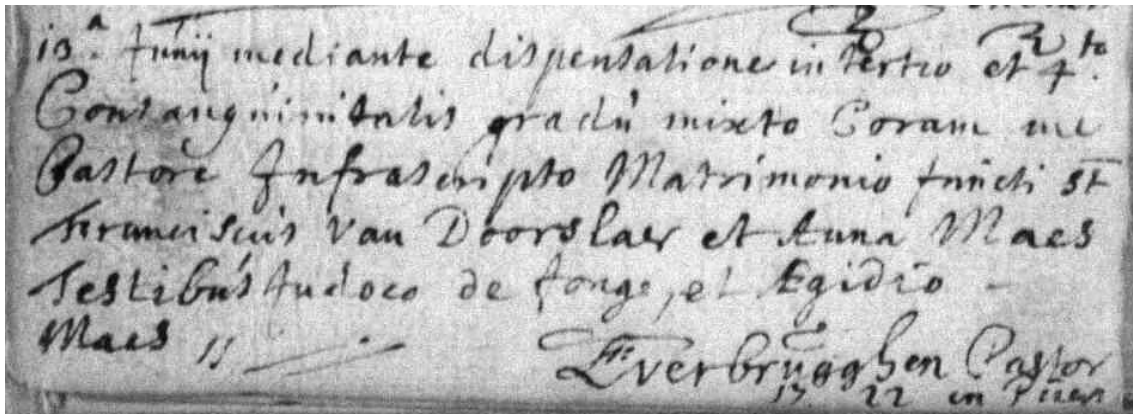 13.a Junij mediante dispensatione in tertio et 4.to
Consanguinitatis gradu mixto Coram me
Pastore Infrascripto Matrimonio juncti st
Franciscus Van Doorslaer et Anna Maes
Testibus Judoco de Jonge, et Ægidio
Maes
Verbrugghen Pastor
17 22 in